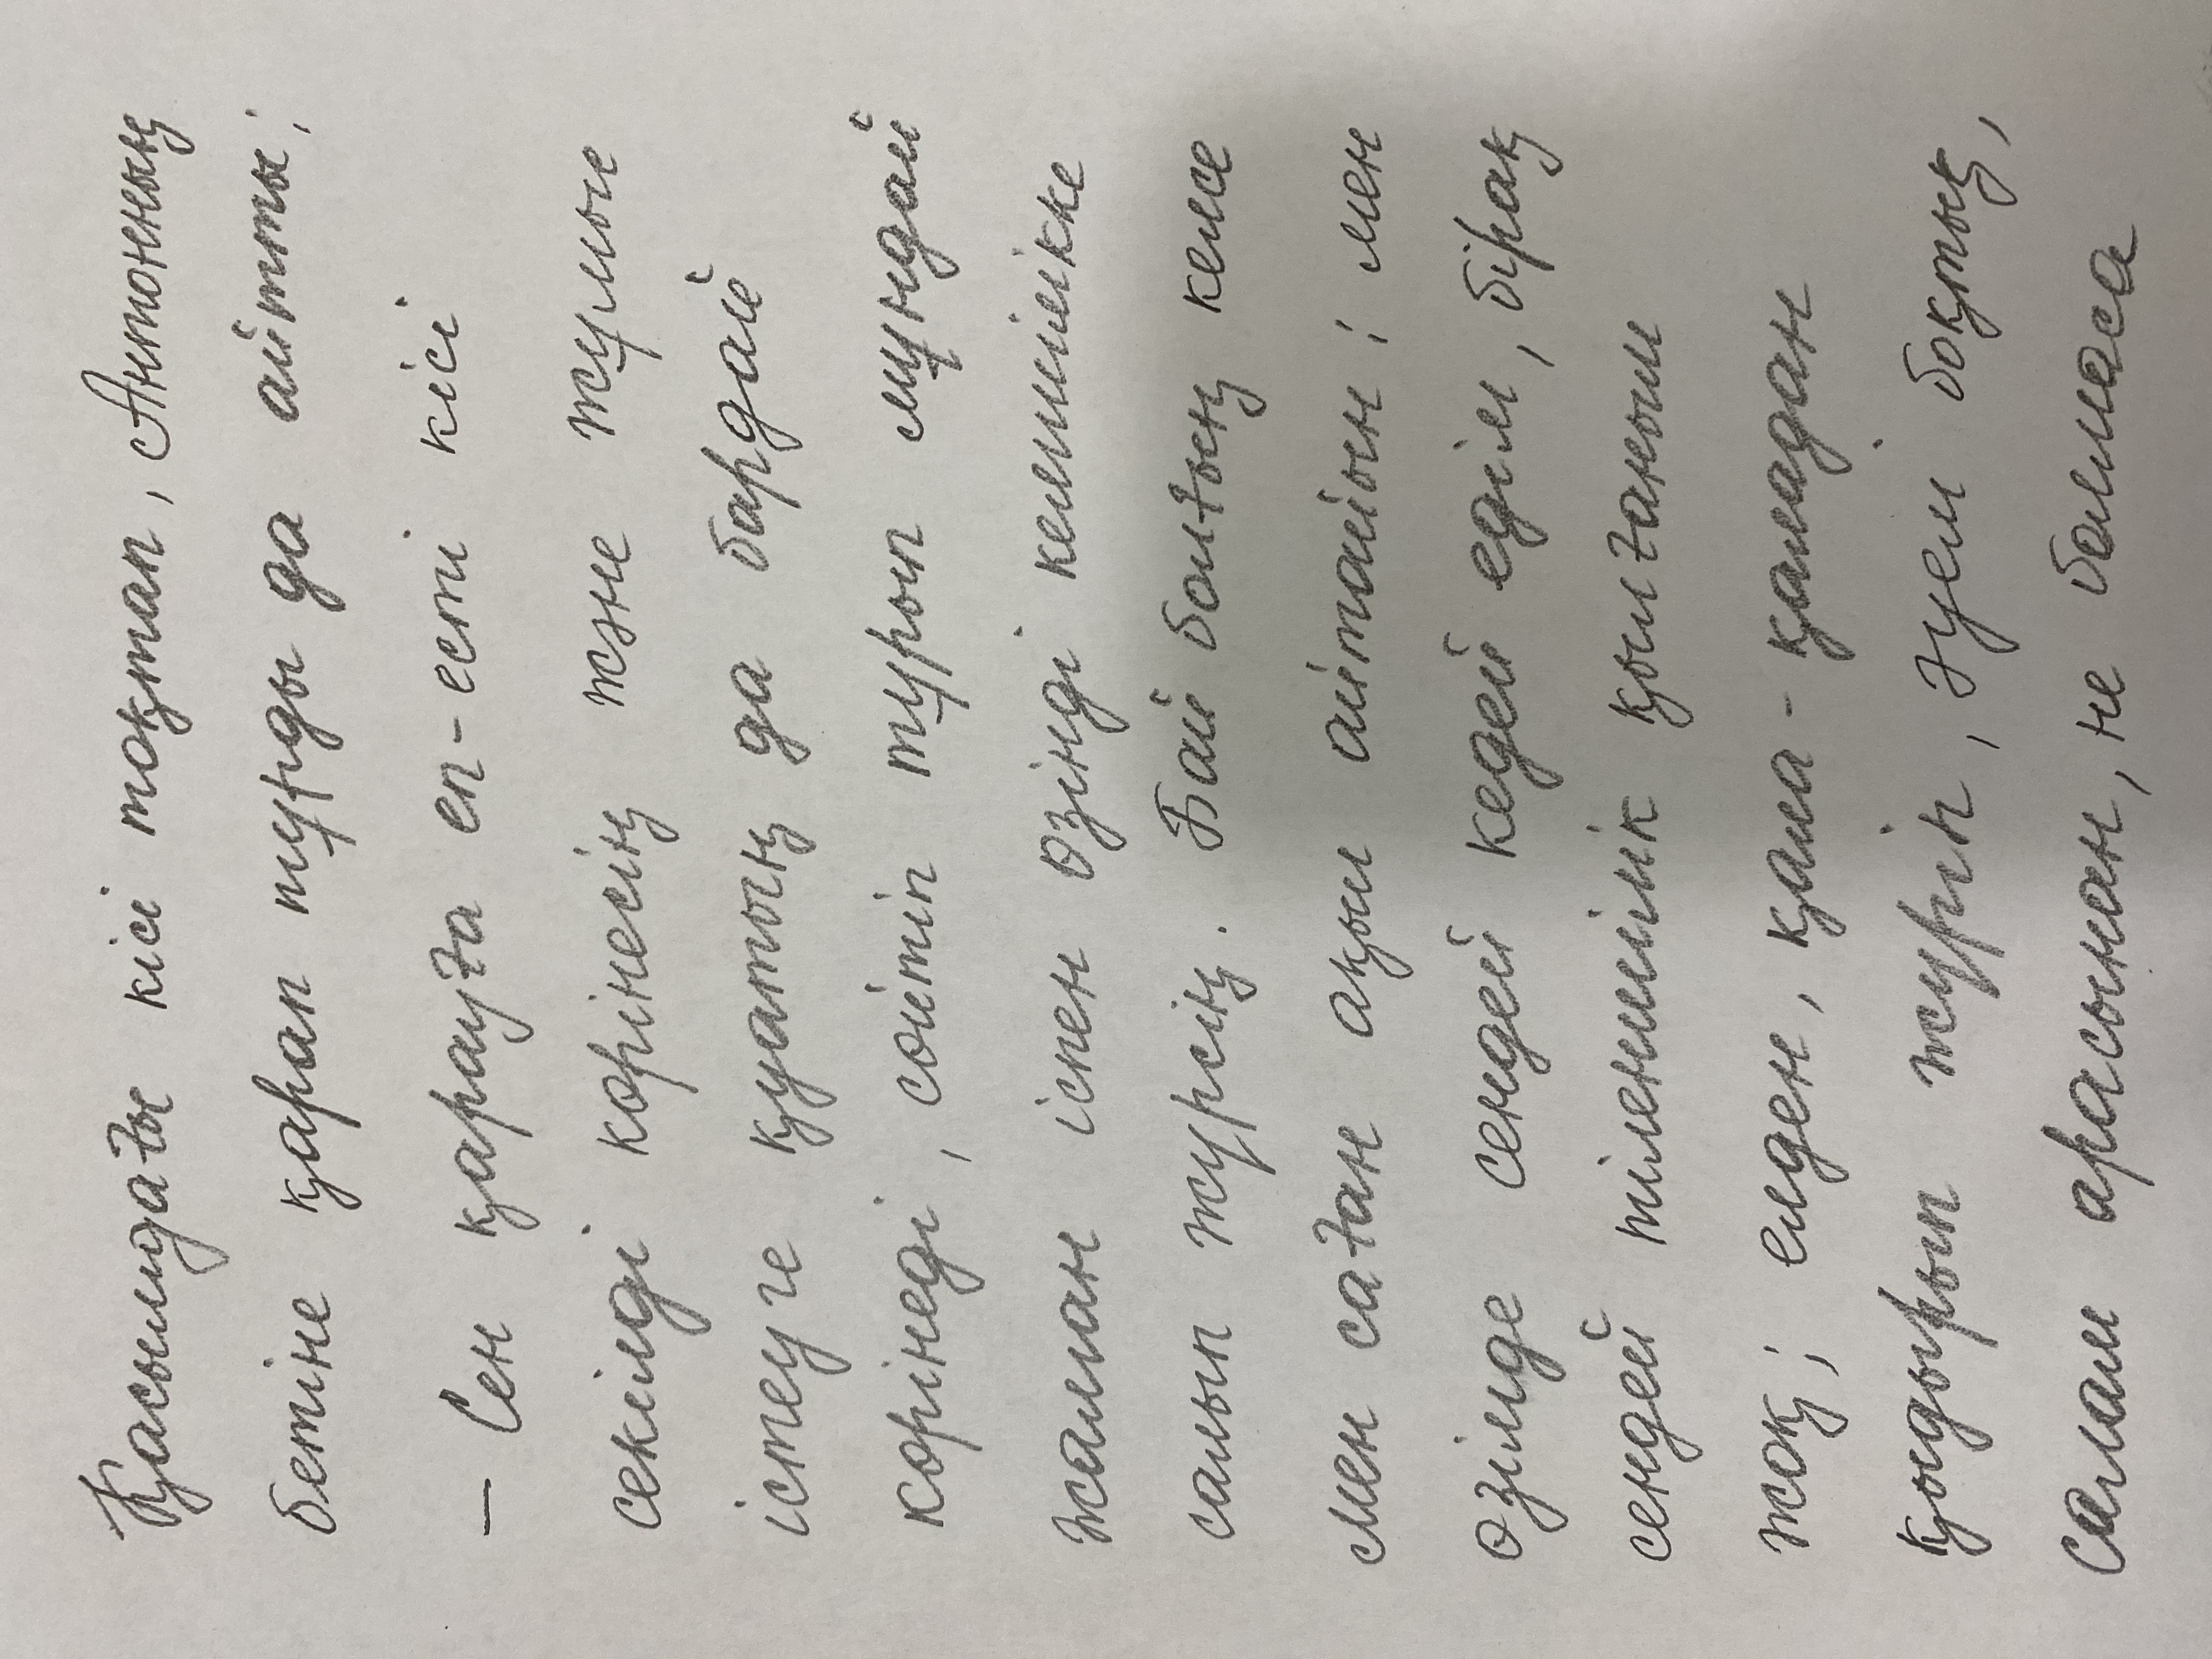 Қасымдағы кісі тоқтап, Антонның
бетіне қарап тұрды да айтты;
– Сен қарауға еп-есті кісі
секілді көрінесің және жұмыс
істеуге қуатың да бардай
көрінеді, сөйтіп тұрып мұндай
жаман іспен өзінді кемшілікке
салып жүрсің. Бай болғың келсе
мен саған ақыл айтайын: мен
өзімде сендей кедей едім, бірақ
сендей тіленшілік қылғаным
жоқ; елден, қала-қаладан
қыдырып жүріп, әуелі боқтық,
салам арасынан, не болмаса